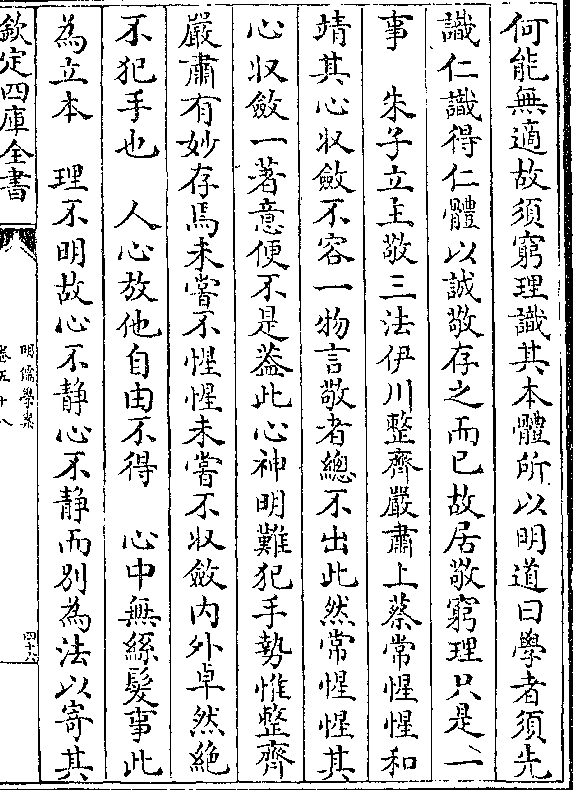 何能無適故須窮理識其本體所以明道曰學者須先
識仁識得仁體以誠敬存之而已故居敬窮理只是一
事　朱子立主敬三法伊川整齊嚴肅上蔡常惺惺和
靖其心収斂不容一物言敬者總不出此然常惺惺其
心収斂一著意便不是葢此心神明難犯手勢惟整齊
嚴肅有妙存焉未嘗不惺惺未嘗不収斂内外卓然絶
不犯手也　人心放他自由不得　心中無絲髮事此
為立本　理不明故心不静心不静而别為法以寄其
欽定四庫全書
明儒學案
卷五十八
四十六